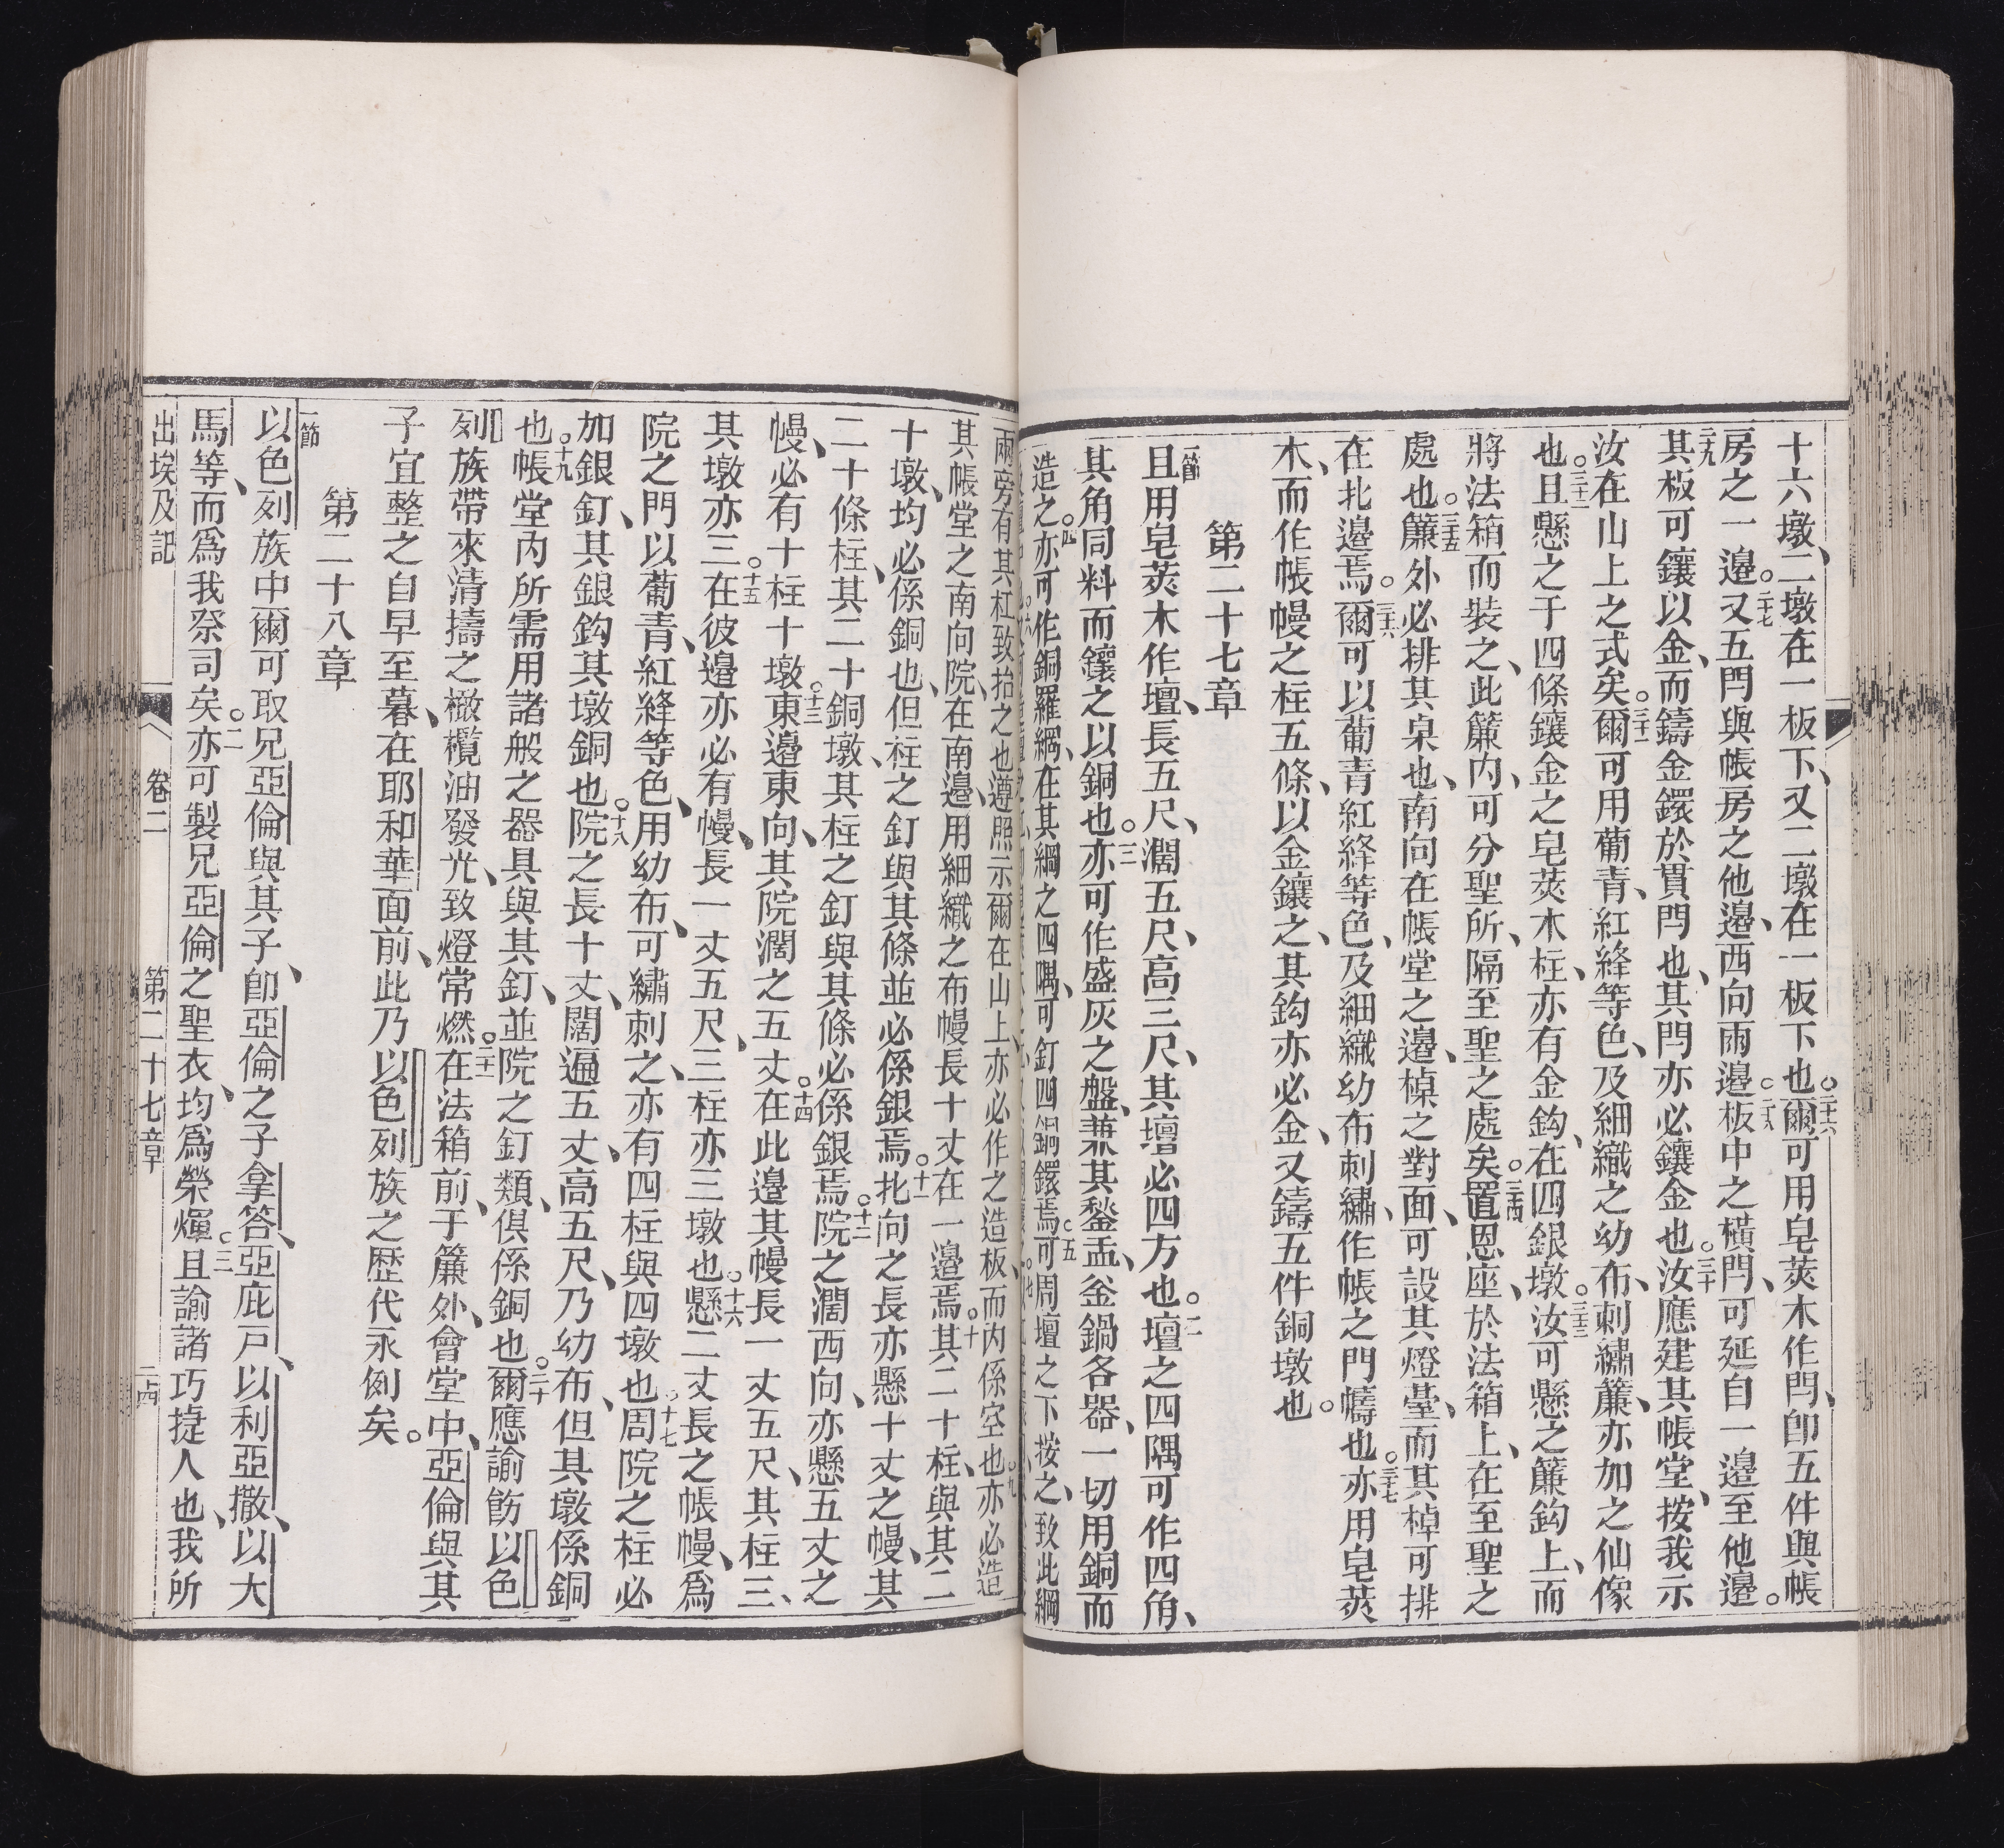 十六墩、二墩在一板下、又二墩在一板下也。二十六爾可用皂莢木作閂、卽五件與帳
房之一邊。二十七又五閂與帳房之他邊、西向兩邊。二十八板中之橫閂、可延自一邊至他邊。
二十九其板可鑲以金、而鑄金鐶於貫閂也、其閂亦必鑲金也。三十汝應建其帳堂、按我示
汝在山上之式矣。三十一爾可用葡青、紅絳等色、及細織之幼布、刺繡簾、亦加之仙像
也。三十二且懸之于四條鑲金之皂莢木柱、亦有金鈎、在四銀墩。三十三汝可懸之簾鈎上、而
將法箱而裝之、此簾內、可分聖所、隔至聖之處矣。三十四置恩座、於法箱上、在至聖之
處也。三十五簾外必排其桌也、南向在帳堂之邊、棹之對面、可設其燈臺、而其棹可排
在北邊焉。三十六爾可以葡青紅絳等色、及細織幼布刺繡、作帳之門幬也。三十七亦用皂莢
木、而作帳幔之柱五條、以金鑲之、其鈎亦必金、又鑄五件銅墩也。
第二十七章
一節且用皂莢木作壇、長五尺、濶五尺、高三尺、其壇必四方也。二壇之四隅可作四角、
其角同料而鑲之以銅也。三亦可作盛灰之盤、兼其鍫、盂、釜鍋各器、一切用銅而
造之。四亦可作銅羅綱、在其綱之四隅、可釘四銅鐶焉。五可周壇之下按之、致此綱
兩旁有其杠致抬之也遵照示爾在山上、亦必作之造板、而內係空也。九亦必造
其帳堂之南向院、在南邊、用細織之布幔長十丈在一邊焉。十其二十柱、與其二
十墩、均必係銅也、但柱、之釘與其條並必係銀焉。十一北向之長亦懸十丈之幔、其
二十條柱、其二十銅墩、其柱之釘與其條必係銀焉。十二院之濶西向、亦懸五丈之
幔、必有十柱十墩。十三東邊東向、其院濶之五丈。十四在此邊其幔長一丈五尺、其柱三、
其墩亦三。十五在彼邊亦必有幔、長一丈五尺、三柱亦三墩也。十六懸二丈長之帳幔、爲
院之門以葡青、紅絳等色、用幼布、可繡刺之、亦有四柱與四墩也。十七周院之柱必
加銀釘、其銀鈎其墩銅也。十八院之長十丈、闊遍五丈、高五尺、乃幼布、但其墩係銅
也。十九帳堂內所需用諸般之器具與其釘、並院之釘類、俱係銅也。二十爾應諭飭以色
列族帶來清擣之橄欖油發光、致燈常燃。二十一在法箱前、于簾外、會堂中、亞倫與其
子宜整之自早至暮、在耶和華面前、此乃以色列族之歷代永例矣。
第二十八章
一節以色列族中爾可取兄亞倫與其子、卽亞倫之子拿答、亞庇戸、以利亞撒、以大
馬等、而爲我祭司矣。二亦可製兄亞倫之聖衣、均爲榮煇。三且諭諸巧捷人也、我所
出埃及記　卷二　第二十七章　二四